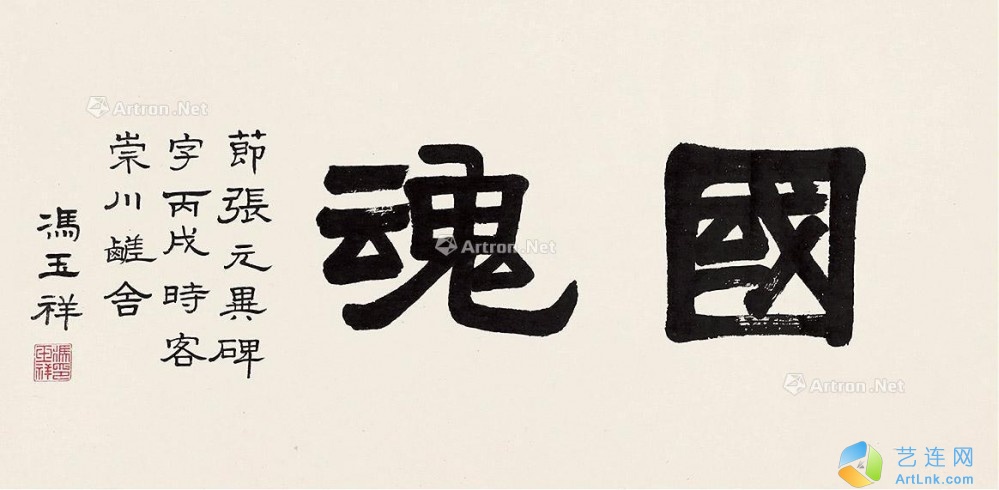 國魂
節張元異碑
字丙戌時客
崇川鹺舍
馮玉祥
馮玉祥印
Artron.Net
Artron.Net
Artron.Net
艺连网
ArtLnk.com